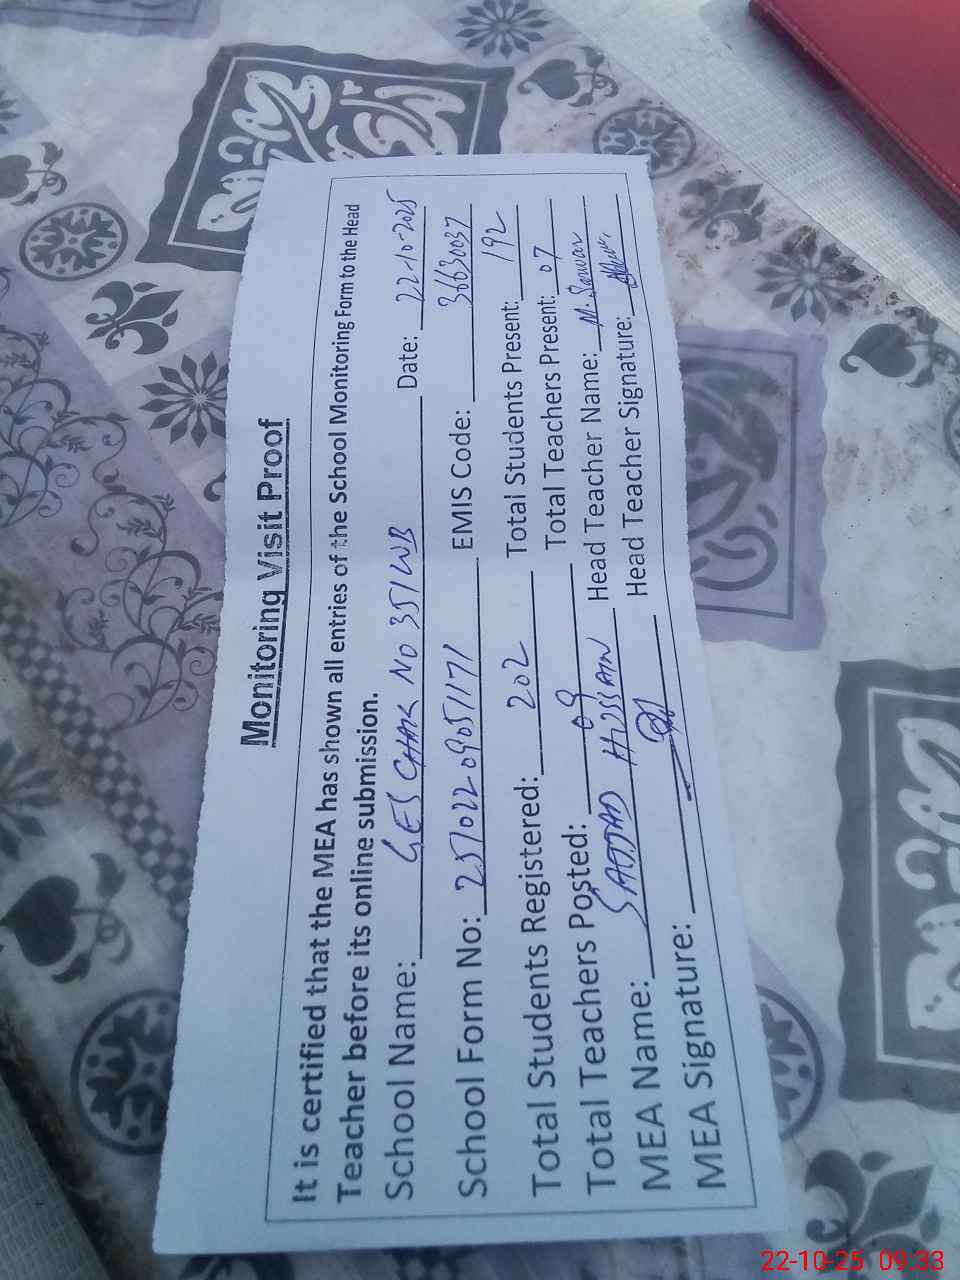 Monitoring Visit Proof
It is certified that the MEA has shown all entries of the School Monitoring Form to the Head
Teacher before its online submission.
School Name: GES CHAK NO 351WB Date: 22-10-2025
School Form No: 25102209051171 EMIS Code: 36630037
Total Students Registered: 202 Total Students Present: 192
Total Teachers Posted: 09 Total Teachers Present: 07
MEA Name: SAJJAD HUSSAIN Head Teacher Name: M. Sarwar
MEA Signature: Head Teacher Signature:
22-10-25 09:33